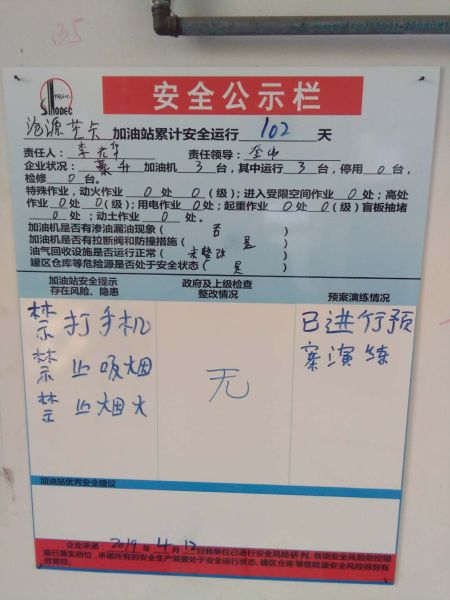 35
SINOPEC
安全公示栏
沧源芒卡 加油站累计安全运行 102 天
责任人： 责任领导：
企业状况： 加油机 3 台，其中运行 3 台，停用 0 台，
检修 0 台。
特殊作业，动火作业 0 处 0 (级)；进入受限空间作业 0 处；高处
作业 0 处 0 (级)；用电作业 0 处；起重作业 0 处 0 (级) 盲板抽堵
0 处；动土作业 0 处。
加油机是否有渗油漏油现象（ 否 ）
加油机是否有拉断阀和防撞措施（ 是 ）
油气回收设施是否运行正常（ 未整改 ）
罐区仓库等危险源是否处于安全状态（ 是 ）
加油站安全提示
存在风险、隐患
政府及上级检查
整改情况
预案演练情况
禁示打手机
禁示止吸烟
禁示止烟火
无
已进行预
案演练
加油站优秀安全建议
企业承诺：2019 年 4 月 12 日我单位已进行安全风险研判，各项安全风险防控措
施已落实到位，承诺所有的安全生产装置处于安全运行状态，罐区仓库等危险源安全风险得到有
效管控。